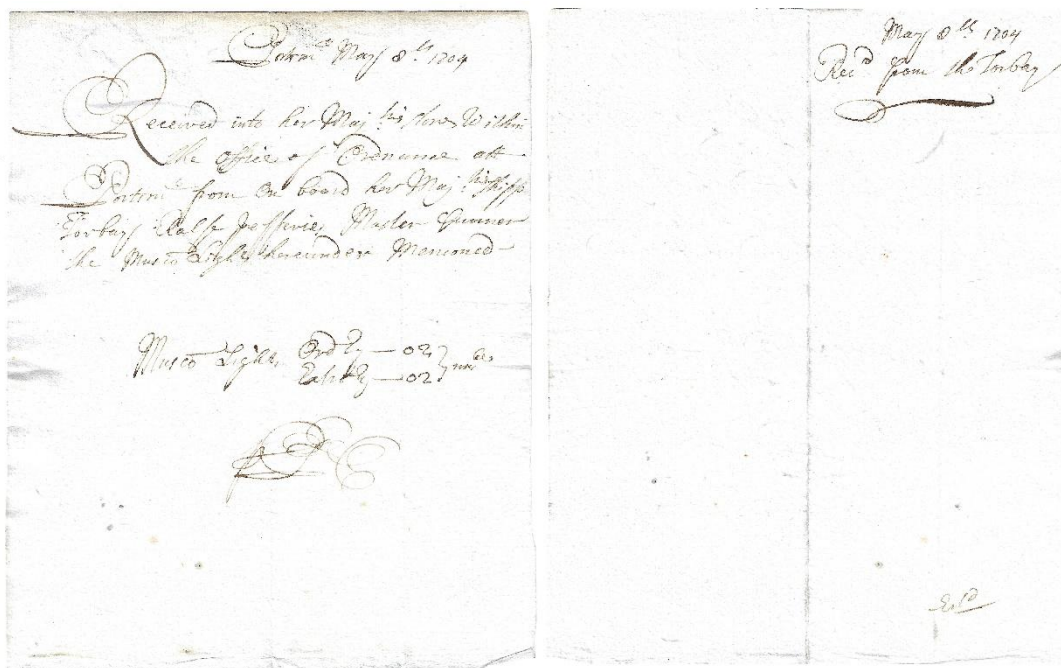 Portsmo May 8th 1704
Received into her Majties stores Within
the office of Ordnance att
Portsmo from on board her Majties Shipp
Torbay Ralfe Jefferie Master Gunner
the Musco Lights hereunder Menconed
Musco Lights Ordry — 02
Extrdry — 02
May 8th 1704
Recd from the Torbay
Entd